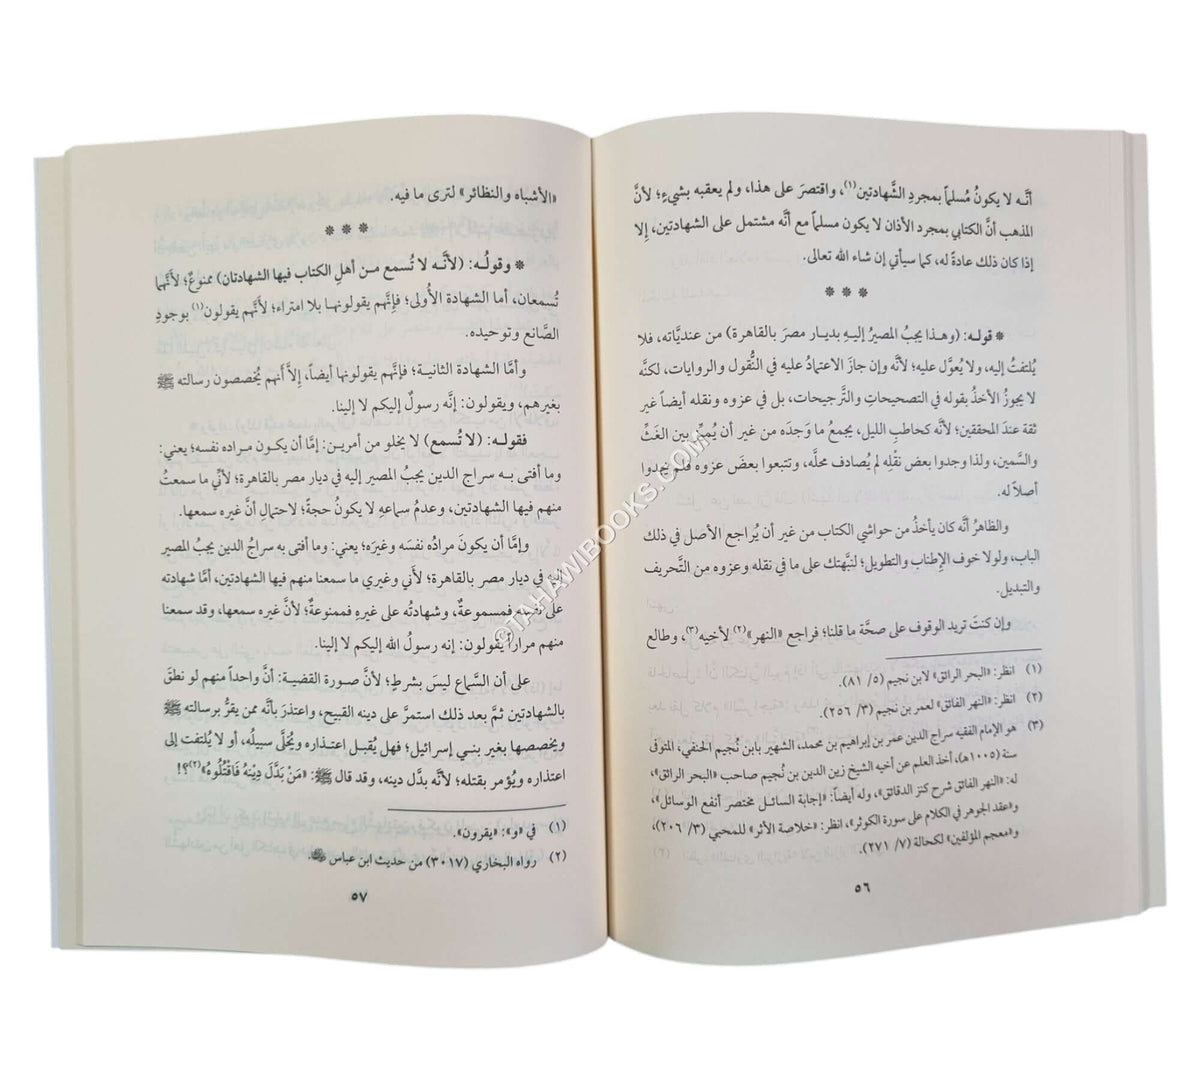 أنَّه لا يكونُ مُسلماً بمجردِ الشَّهادتين(١)، واقتصرَ على هذا، ولم يعقبه بشيءٍ؛ لأنَّ
المذهب أنَّ الكتابي بمجرد الأذان لا يكون مسلماً مع أنَّه مشتمل على الشهادتين، إلا
إذا كان ذلك عادةً له، كما سيأتي إن شاء الله تعالى.
* * *
* قوله: (وهذا يجبُ المصيرُ إليه بديار مصرَ بالقاهرة) من عنديَّاته، فلا
يُلتفتُ إليه، ولا يُعوَّل عليه؛ لأنَّه وإن جازَ الاعتمادُ عليه في النُّقول والروايات، لكنَّه
لا يجوزُ الأخذُ بقوله في التصحيحاتِ والتَّرجيحات، بل في عزوه ونقله أيضاً غير
ثقة عندَ المحققين؛ لأنَّه كحاطبِ الليل، يجمعُ ما وَجَدَه من غير أن يُميِّز بين الغَثِّ
والسَّمين، ولذا وجدوا بعض نقْلِه لم يُصادف محلَّه، وتتبعوا بعضَ عزوه فلم يجدوا
أصلاً له.
والظاهرُ أنَّه كان يأخذُ من حواشي الكتاب من غير أن يُراجع الأصل في ذلك
الباب، ولولا خوف الإطناب والتطويل؛ لنبَّهتك على ما في نقله وعزوه من التَّحريف
والتبديل.
وإن كنتَ تريد الوقوف على صحَّة ما قلنا؛ فراجع «النهر»(٢) لأخيه(٣)، وطالع
(١) انظر: «البحر الرائق» لابن نجيم (٥/ ٨١).
(٢) انظر: «النهر الفائق» لعمر بن نجيم (٣/ ٢٥٦).
(٣) هو الإمام الفقيه سراج الدين عمر بن إبراهيم بن محمد، الشهير بابن نُجيم الحنفي، المتوفى
سنة (١٠٠٥هـ)، أخذ العلم عن أخيه الشيخ زين الدين بن نُجيم صاحب «البحر الرائق»،
له: «النهر الفائق شرح كنز الدقائق»، وله أيضاً: «إجابة السائل مختصر أنفع الوسائل»،
و«عقد الجوهر في الكلام على سورة الكوثر»، انظر: «خلاصة الأثر» للمحبي (٣/ ٢٠٦)،
و«معجم المؤلفين» لكحالة (٧/ ٢٧١).
٥٦
«الأشباه والنظائر» لترى ما فيه.
* * *
* وقولُه: (لأنَّه لا تُسمع من أهلِ الكتاب فيها الشهادتان) ممنوعٌ؛ لأنَّهما
تُسمعان، أما الشهادة الأُولى؛ فإنَّهم يقولونها بلا امتراء؛ لأنَّهم يقولون(١) بوجودِ
الصَّانع وتوحيده.
وأمَّا الشهادة الثانية؛ فإنَّهم يقولونها أيضاً، إلاَّ أنهم يُخصصون رسالته ﷺ
بغيرهم، ويقولون: إنَّه رسولٌ إليكم لا إلينا.
فقوله: (لا تُسمع) لا يخلو من أمرين: إمَّا أن يكون مراده نفسه؛ يعني:
وما أفتى به سراج الدين يجبُ المصير إليه في ديار مصر بالقاهرة؛ لأنِّي ما سمعتُ
منهم فيها الشهادتين، وعدمُ سماعِه لا يكونُ حجةً؛ لاحتمالِ أنَّ غيره سمعها.
وإمَّا أن يكونَ مرادُه نفسَه وغيرَه؛ يعني: وما أفتى به سراجُ الدين يجبُ المصير
إليه في ديار مصر بالقاهرة؛ لأني وغيري ما سمعنا منهم فيها الشهادتين، أمَّا شهادته
على نفسِه فمسموعةٌ، وشهادتُه على غيرِه فممنوعةٌ؛ لأنَّ غيره سمعها، وقد سمعنا
منهم مراراً يقولون: إنه رسولُ الله إليكم لا إلينا.
على أن السَّماع ليسَ بشرطٍ؛ لأنَّ صورة القضية: أنَّ واحداً منهم لو نطقَ
بالشهادتين ثمَّ بعد ذلك استمرَّ على دينه القبيح، واعتذرَ بأنَّه ممن يقرُّ برسالته ﷺ
ويخصصها بغير بنـي إسرائيل؛ فهل يُقبل اعتذاره ويُخلَّى سبيلُه، أو لا يُلتفت إلى
اعتذاره ويُؤمر بقتله؛ لأنَّه بدَّل دينه، وقد قال ﷺ: «مَنْ بَدَّلَ دِيْنَهُ فَاقْتُلُوهُ»(٢)؟!
(١) في «و»: «يقرون».
(٢) رواه البخاري (٣٠١٧) من حديث ابن عباس رضي الله عنه.
٥٧
©TAHAWIBOOKS.COM